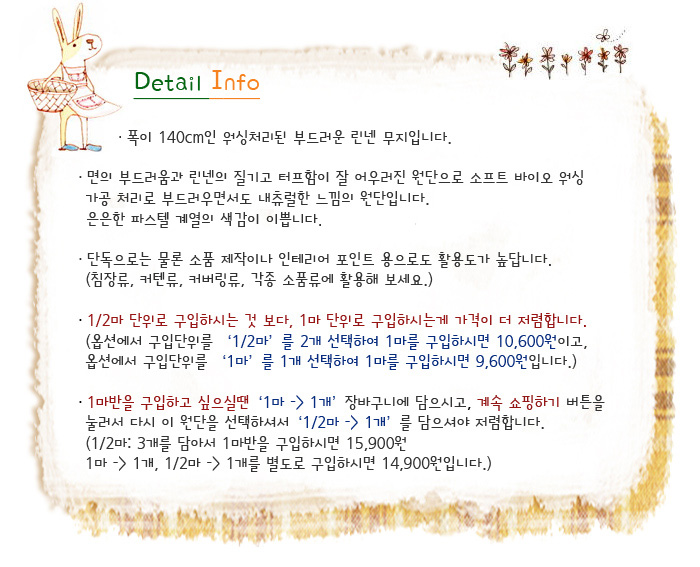 Detail Info
· 폭이 140cm인 워싱처리된 부드러운 린넨 무지입니다.
· 면의 부드러움과 린넨의 질기고 터프함이 잘 어우러진 원단으로 소프트 바이오 워싱
가공 처리로 부드러우면서도 내츄럴한 느낌의 원단입니다.
은은한 파스텔 계열의 색감이 이쁩니다.
· 단독으로는 물론 소품 제작이나 인테리어 포인트 용으로도 활용도가 높답니다.
(침장류, 커텐류, 커버링류, 각종 소품류에 활용해 보세요.)
· 1/2마 단위로 구입하시는 것 보다, 1마 단위로 구입하시는게 가격이 더 저렴합니다.
(옵션에서 구입단위를 ‘1/2마’ 를 2개 선택하여 1마를 구입하시면 10,600원이고,
옵션에서 구입단위를 ‘1마’ 를 1개 선택하여 1마를 구입하시면 9,600원입니다.)
· 1마반을 구입하고 싶으실땐 ‘1마 -> 1개’ 장바구니에 담으시고, 계속 쇼핑하기 버튼을
눌러서 다시 이 원단을 선택하셔서 ‘1/2마 -> 1개’ 를 담으셔야 저렴합니다.
(1/2마: 3개를 담아서 1마반을 구입하시면 15,900원
1마 -> 1개, 1/2마 -> 1개를 별도로 구입하시면 14,900원입니다.)